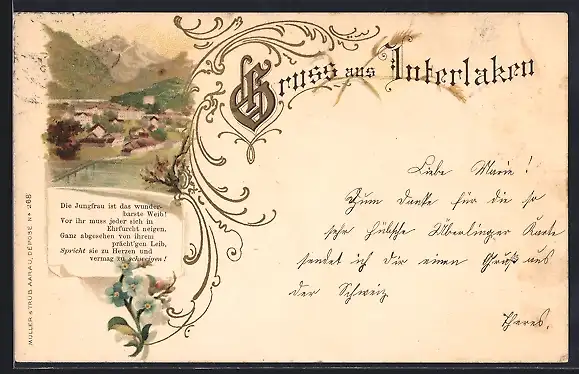 Gruss aus Interlaken
Die Jungfrau ist das wunder-
barste Weib!
Vor ihr muss jeder sich in
Ehrfurcht neigen,
Ganz abgesehen von ihrem
prächt'gen Leib,
Spricht sie zu Herzen und
vermag zu schweigen!
MÜLLER & TRÜB AARAU, DÉPOSÉ No 268
Liebe Marie!
Zum Danke für die so
sehr hübsche Überlinger Karte
sendet ich Dir einen Gruß aus
der Schweiz
Theres.